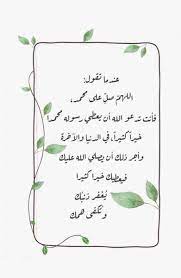 عندما تقول:
اللهمّ صلِّ على محمد،
فأنت تدعو الله أن يعطي رسوله محمدا
خيراً كثيراً، في الدنيا والآخرة
وأجر ذلك أن يصلي الله عليك
فيعطيك خيرا كثيرا
يُغفر ذنبك
وتُكفى همك